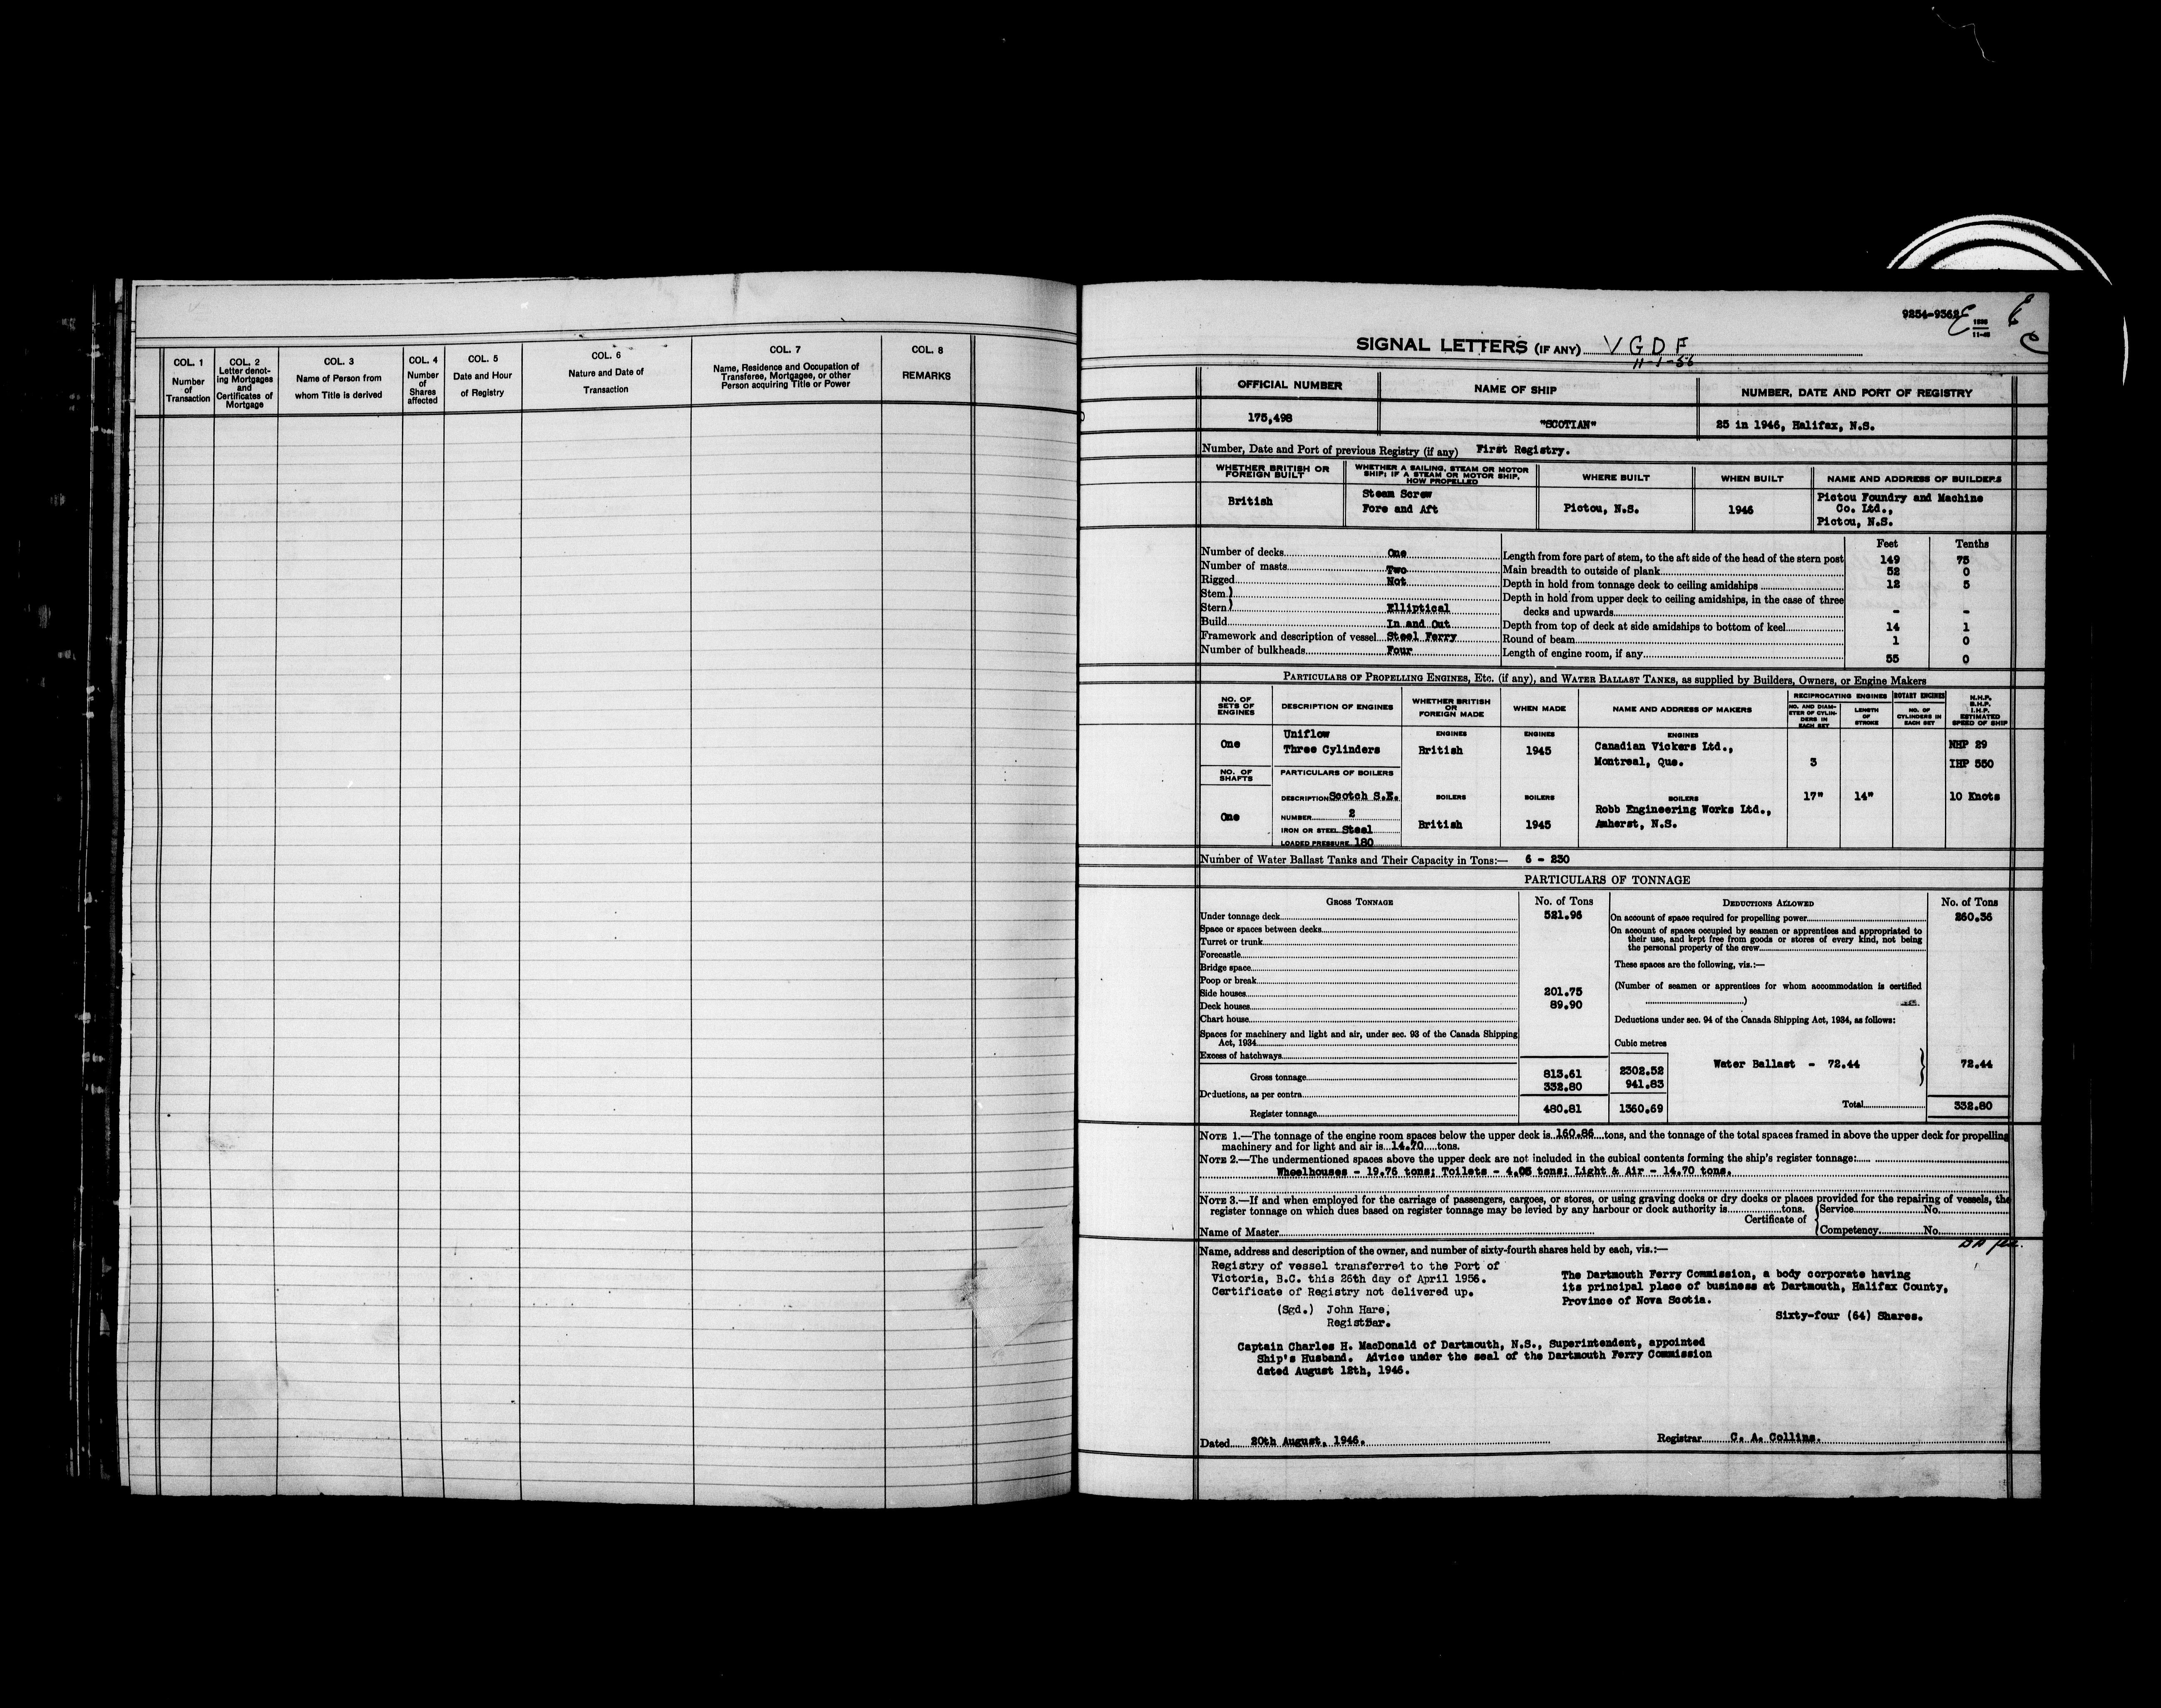 COL. 1
Number
of
Transaction
COL. 2
Letter denot-
ing Mortgages
and
Certificates of
Mortgage
COL. 3
Name of Person from
whom Title is derived
COL. 4
Number
of
Shares
affected
COL. 5
Date and Hour
of Registry
COL. 6
Nature and Date of
Transaction
COL. 7
Name, Residence and Occupation of
Transferee, Mortgagee, or other
Person acquiring Title or Power
COL. 8
REMARKS
9254-9362
SIGNAL LETTERS (IF ANY) V G D F
11-1-56
OFFICIAL NUMBER
NAME OF SHIP
NUMBER, DATE AND PORT OF REGISTRY
175,498
"SCOTIAN"
25 in 1946, Halifax, N.S.
Number, Date and Port of previous Registry (if any) First Registry.
WHETHER BRITISH OR
FOREIGN BUILT
WHETHER A SAILING, STEAM OR MOTOR
SHIP; IF A STEAM OR MOTOR SHIP,
HOW PROPELLED
WHERE BUILT
WHEN BUILT
NAME AND ADDRESS OF BUILDERS
British
Steam Screw
Fore and Aft
Pictou, N.S.
1946
Pictou Foundry and Machine
Co. Ltd.,
Pictou, N.S.
Feet Tenths
Number of decks One
Number of masts Two
Rigged Not
Stem)
Stern) Elliptical
Build In and Out
Framework and description of vessel Steel Ferry
Number of bulkheads Four
Length from fore part of stem, to the aft side of the head of the stern post 149 75
Main breadth to outside of plank 52 0
Depth in hold from tonnage deck to ceiling amidships 12 5
Depth in hold from upper deck to ceiling amidships, in the case of three
decks and upwards - -
Depth from top of deck at side amidships to bottom of keel 14 1
Round of beam 1 0
Length of engine room, if any 55 0
PARTICULARS OF PROPELLING ENGINES, ETC. (if any), and WATER BALLAST TANKS, as supplied by Builders, Owners, or Engine Makers
NO. OF
SETS OF
ENGINES
DESCRIPTION OF ENGINES
WHETHER BRITISH
OR
FOREIGN MADE
WHEN MADE
NAME AND ADDRESS OF MAKERS
RECIPROCATING ENGINES
NO. AND DIAM-
ETER OF CYLIN-
DERS IN
EACH SET
LENGTH
OF
STROKE
ROTARY ENGINES
NO. OF
CYLINDERS IN
EACH SET
N.H.P.
B.H.P.
I.H.P.
ESTIMATED
SPEED OF SHIP
One
Uniflow
Three Cylinders
ENGINES
British
ENGINES
1945
ENGINES
Canadian Vickers Ltd.,
Montreal, Que.
3
NHP 29
IHP 550
NO. OF
SHAFTS
PARTICULARS OF BOILERS
One
DESCRIPTION Scotch S.E.
NUMBER 2
IRON OR STEEL Steel
LOADED PRESSURE 180
BOILERS
British
BOILERS
1945
BOILERS
Robb Engineering Works Ltd.,
Amherst, N.S.
17"
14"
10 Knots
Number of Water Ballast Tanks and Their Capacity in Tons:— 6 - 230
PARTICULARS OF TONNAGE
GROSS TONNAGE
No. of Tons
DEDUCTIONS ALLOWED
No. of Tons
Under tonnage deck 521.96
Space or spaces between decks
Turret or trunk
Forecastle
Bridge space
Poop or break
Side houses 201.75
Deck houses 89.90
Chart house
Spaces for machinery and light and air, under sec. 93 of the Canada Shipping
Act, 1934
Excess of hatchways
Gross tonnage 813.61
Deductions, as per contra 332.80
Register tonnage 480.81
On account of space required for propelling power 260.36
On account of spaces occupied by seamen or apprentices and appropriated to
their use, and kept free from goods or stores of every kind, not being
the personal property of the crew
These spaces are the following, viz.:—
(Number of seamen or apprentices for whom accommodation is certified
)
Deductions under sec. 94 of the Canada Shipping Act, 1934, as follows:
Cubic metres
2302.52
941.83
1360.69
Water Ballast - 72.44
72.44
Total 332.80
NOTE 1.—The tonnage of the engine room spaces below the upper deck is 160.86 tons, and the tonnage of the total spaces framed in above the upper deck for propelling
machinery and for light and air is 14.70 tons.
NOTE 2.—The undermentioned spaces above the upper deck are not included in the cubical contents forming the ship's register tonnage:
Wheelhouses - 19.76 tons; Toilets - 4.05 tons; Light & Air - 14.70 tons.
NOTE 3.—If and when employed for the carriage of passengers, cargoes, or stores, or using graving docks or dry docks or places provided for the repairing of vessels, the
register tonnage on which dues based on register tonnage may be levied by any harbour or dock authority is tons.
Certificate of
Service No.
Competency No.
Name of Master
Name, address and description of the owner, and number of sixty-fourth shares held by each, viz.:—
Registry of vessel transferred to the Port of
Victoria, B.C. this 26th day of April 1956.
Certificate of Registry not delivered up.
(Sgd.) John Hare,
Registrar.
The Dartmouth Ferry Commission, a body corporate having
its principal place of business at Dartmouth, Halifax County,
Province of Nova Scotia.
Sixty-four (64) Shares.
Captain Charles H. MacDonald of Dartmouth, N.S., Superintendent, appointed
Ship's Husband. Advice under the seal of the Dartmouth Ferry Commission
dated August 12th, 1946.
Dated 20th August, 1946.
Registrar C. A. Collins.